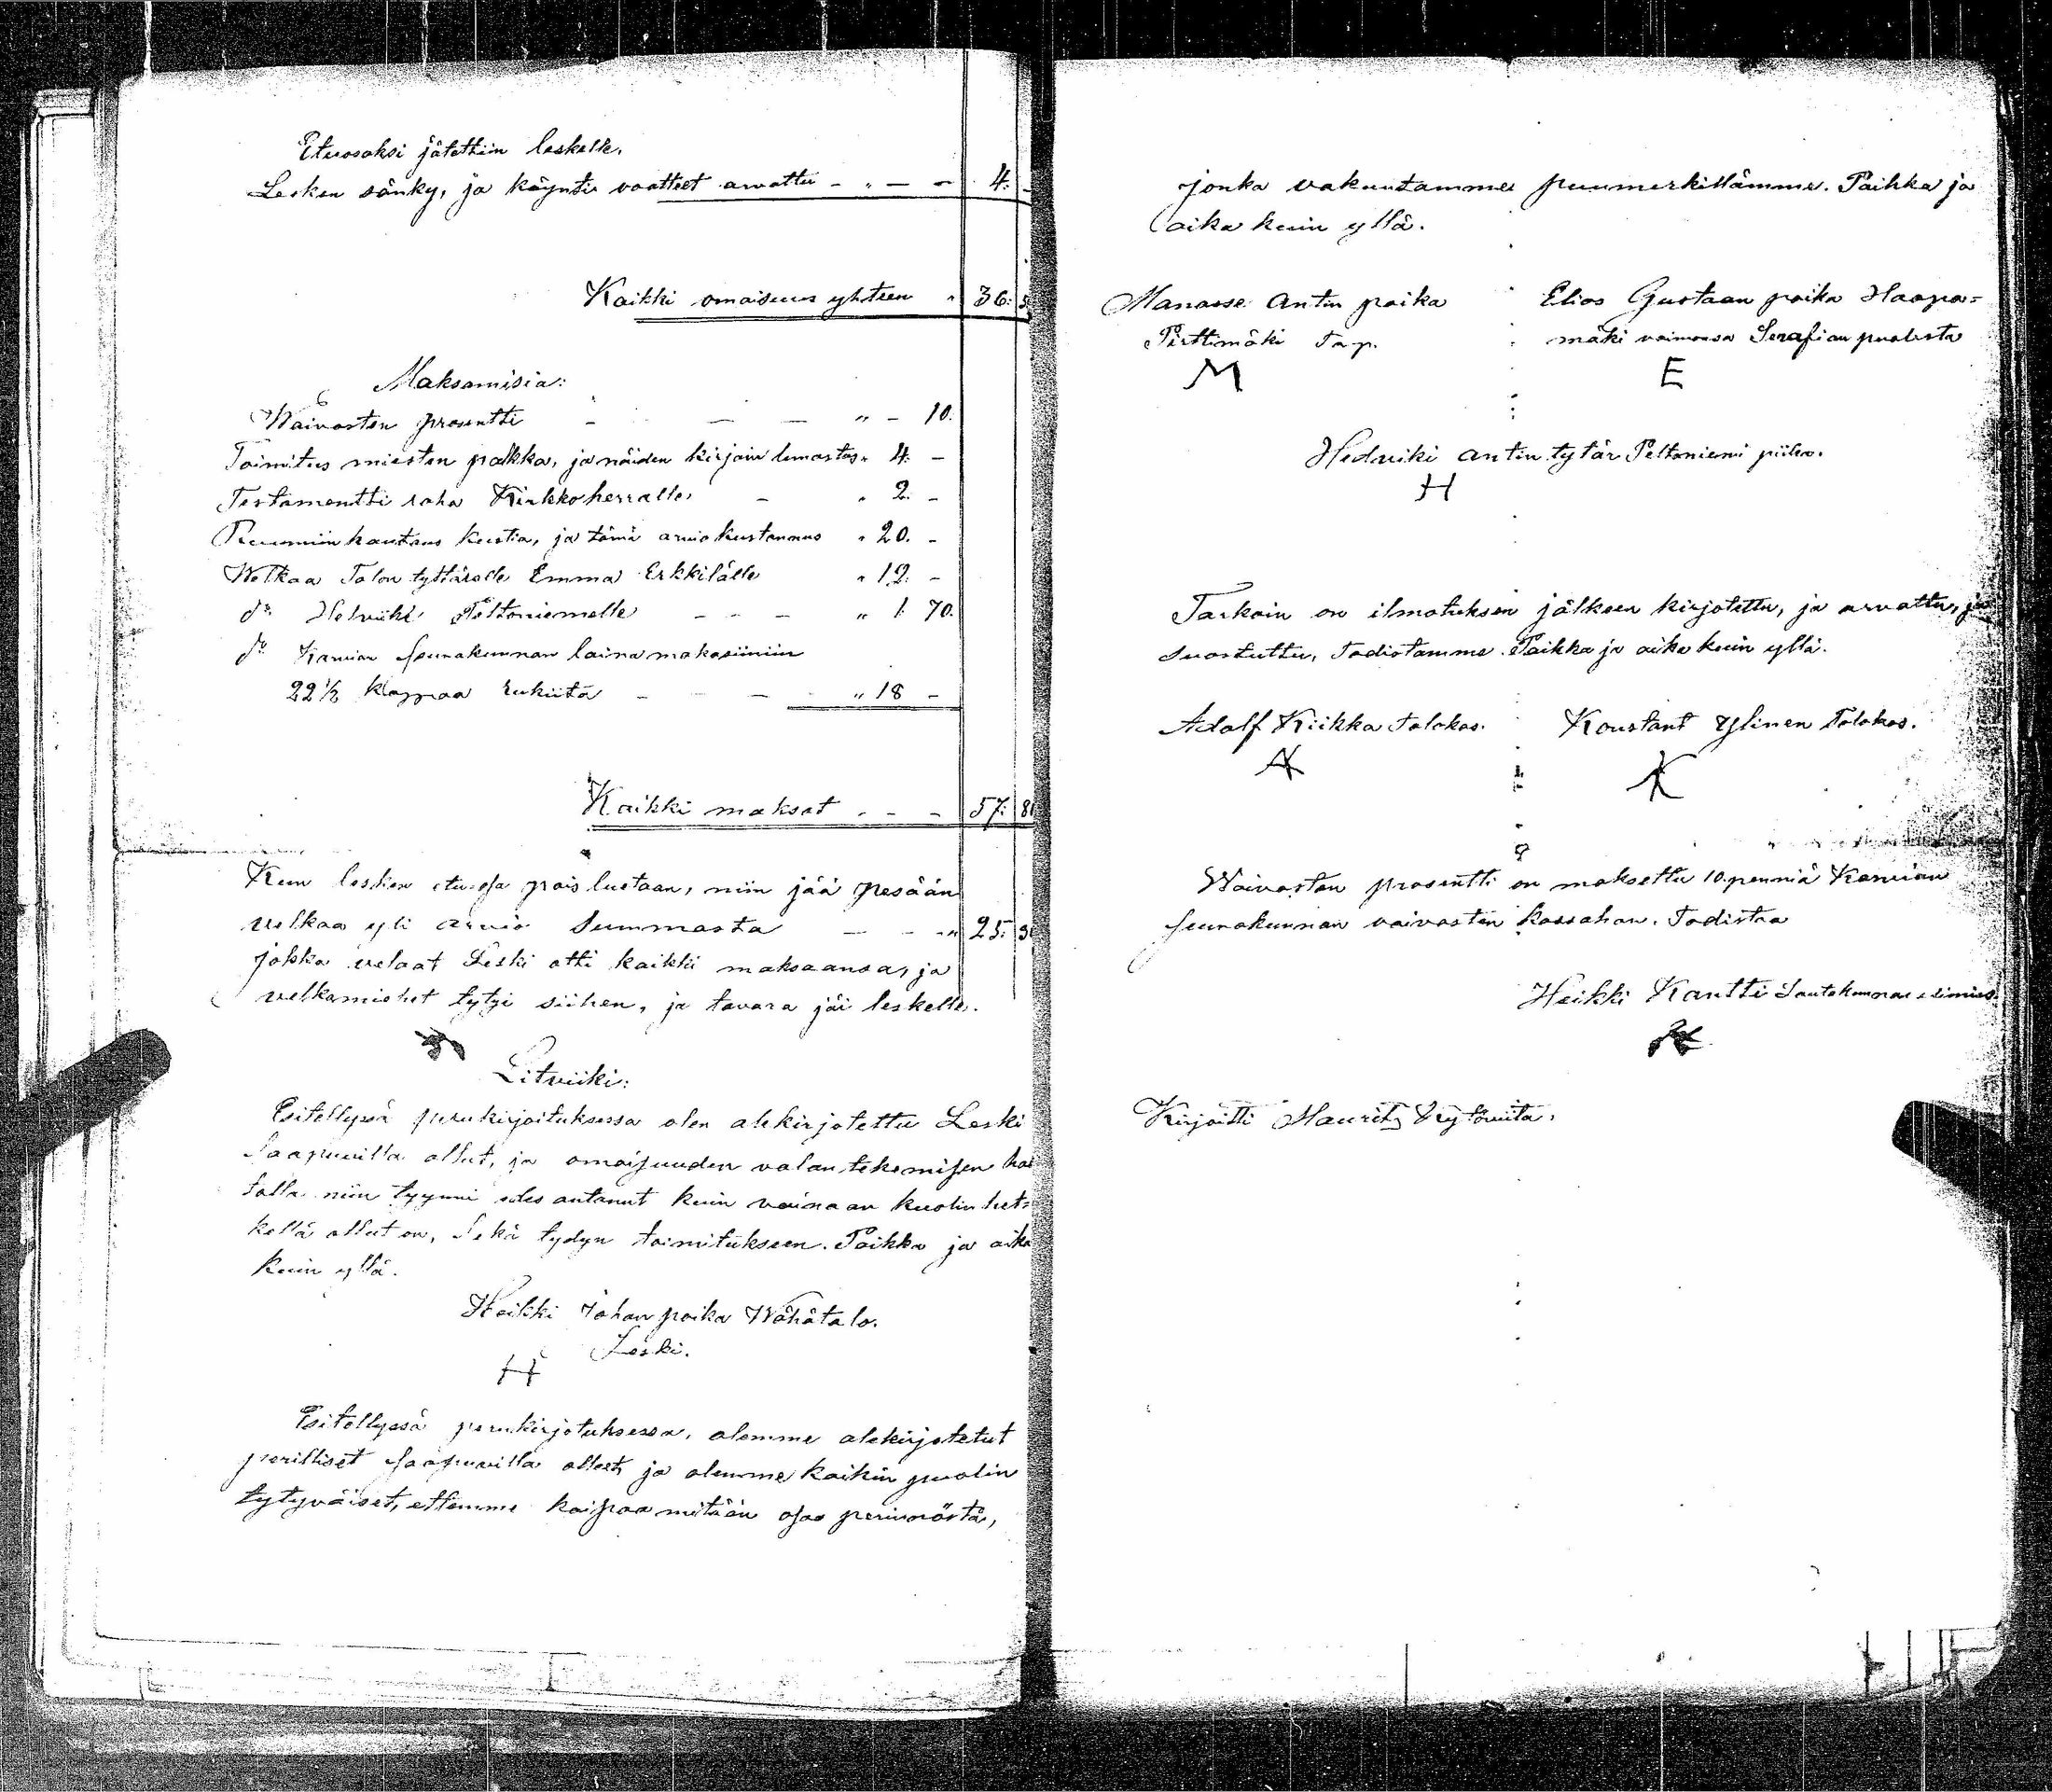 Etuosaksi jätettiin leskelle.
Lesken sänky, ja käynti vaatteet arvattu - „ — - 4. -
Kaikki omaisuus yhteen „ 36.
Maksamisia:
Waivasten prosentti - — — „ - 10.
Toimitus miesten palkka, ja näiden kirjain lunastos „ 4. -
Testamentti raha Kirkkoherralle - „ 2. -
Ruumiin hautaus kestia, ja tämä arvio kustannus „ 20. -
Welkaa Talon tyttärelle Emma Erkkilälle „ 12. -
do Helviiki Peltoniemelle - - - „ 1. 70.
do Karvian seurakunnan lainamakasiiniin
22 1/2 kappaa rukiita - - — „ 18 -
Kaikki maksat - - - 57. 80
Kun lesken etuosa pois luetaan, niin jää pesään
velkaa yli arvio summasta — - - „ 25.
jokka velaat Leski otti kaikki maksaansa, ja
velkamiehet tytyi siihen, ja tavara jäi leskelle.
Litviiki:
Esitellyssä perukirjoituksessa olen alekirjotettu Leski
saapuvilla ollut, ja omaisuuden valan tekemisen
niin tyynni antanut kuin vainaan kuolin het-
kellä ollut on, sekä tydyn toimitukseen. Paikka ja aika
kuin yllä.
Heikki Johan poika Wähätalo.
Leski.
H
Esitellyssä perukirjotuksessa, olemme alekirjotetut
perilliset saapuvilla olleet, ja olemme kaikin puolin
tytyväiset, ettemme kaipaa mitään osaa perinnöstä,
jonka vakuutamme puumerkillämme. Paikka ja
aika kuin yllä.
Manasse Antin poika Elias Gustaan poika Haapa=
Pirttimäki Tap. mäki vaimonsa Serafian puolesta
M E
Hedviki Antin tytär Peltoniemi piika.
H
Tarkoin on ilmotuksen jälkeen kirjotettu, ja arvattu, ja
suostuttu, Todistamme. Paikka ja aika kuin yllä.
Adolf Kiikka Talokas. Konstant Ylinen Talokas.
A K
Waivasten prosentti on maksettu 10. penniä Karvian
seurakunnan vaivasten kassahan. Todistaa
Heikki Kantti Lautakunnan esimies.
Kirjoitti Maurits Kytöviita.